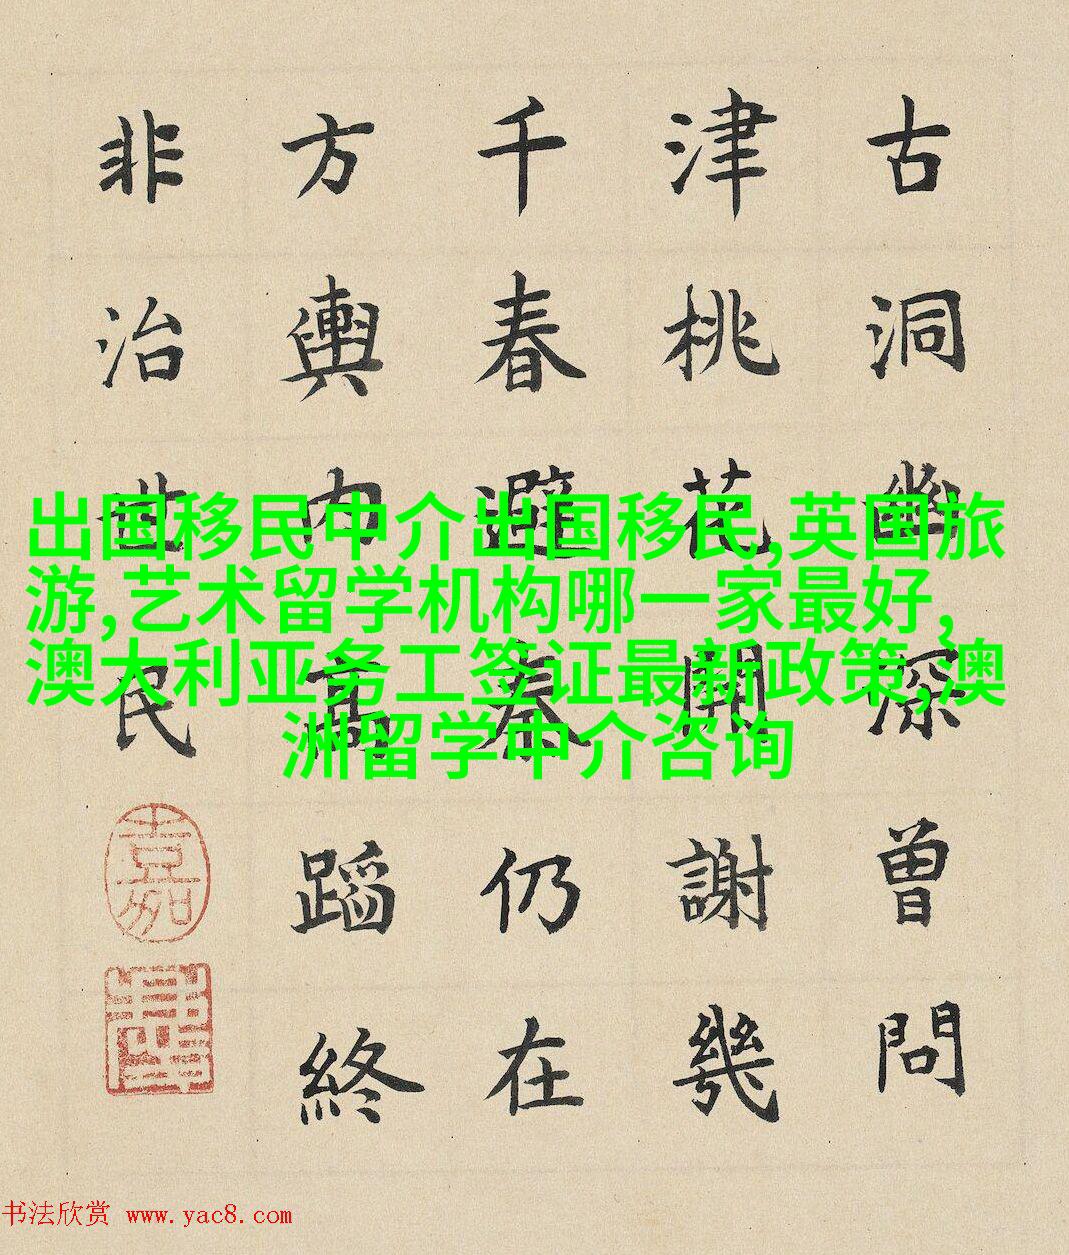 古洞幽深曾問
津桃花開謝幾
千春避秦仍在
方輿内高蹈終
非治世民
出国移民中介出国移民,英国旅
游,艺术留学机构哪一家最好,
澳大利亚务工签证最新政策,澳
洲留学中介咨询
书法欣赏 www.yac8.com